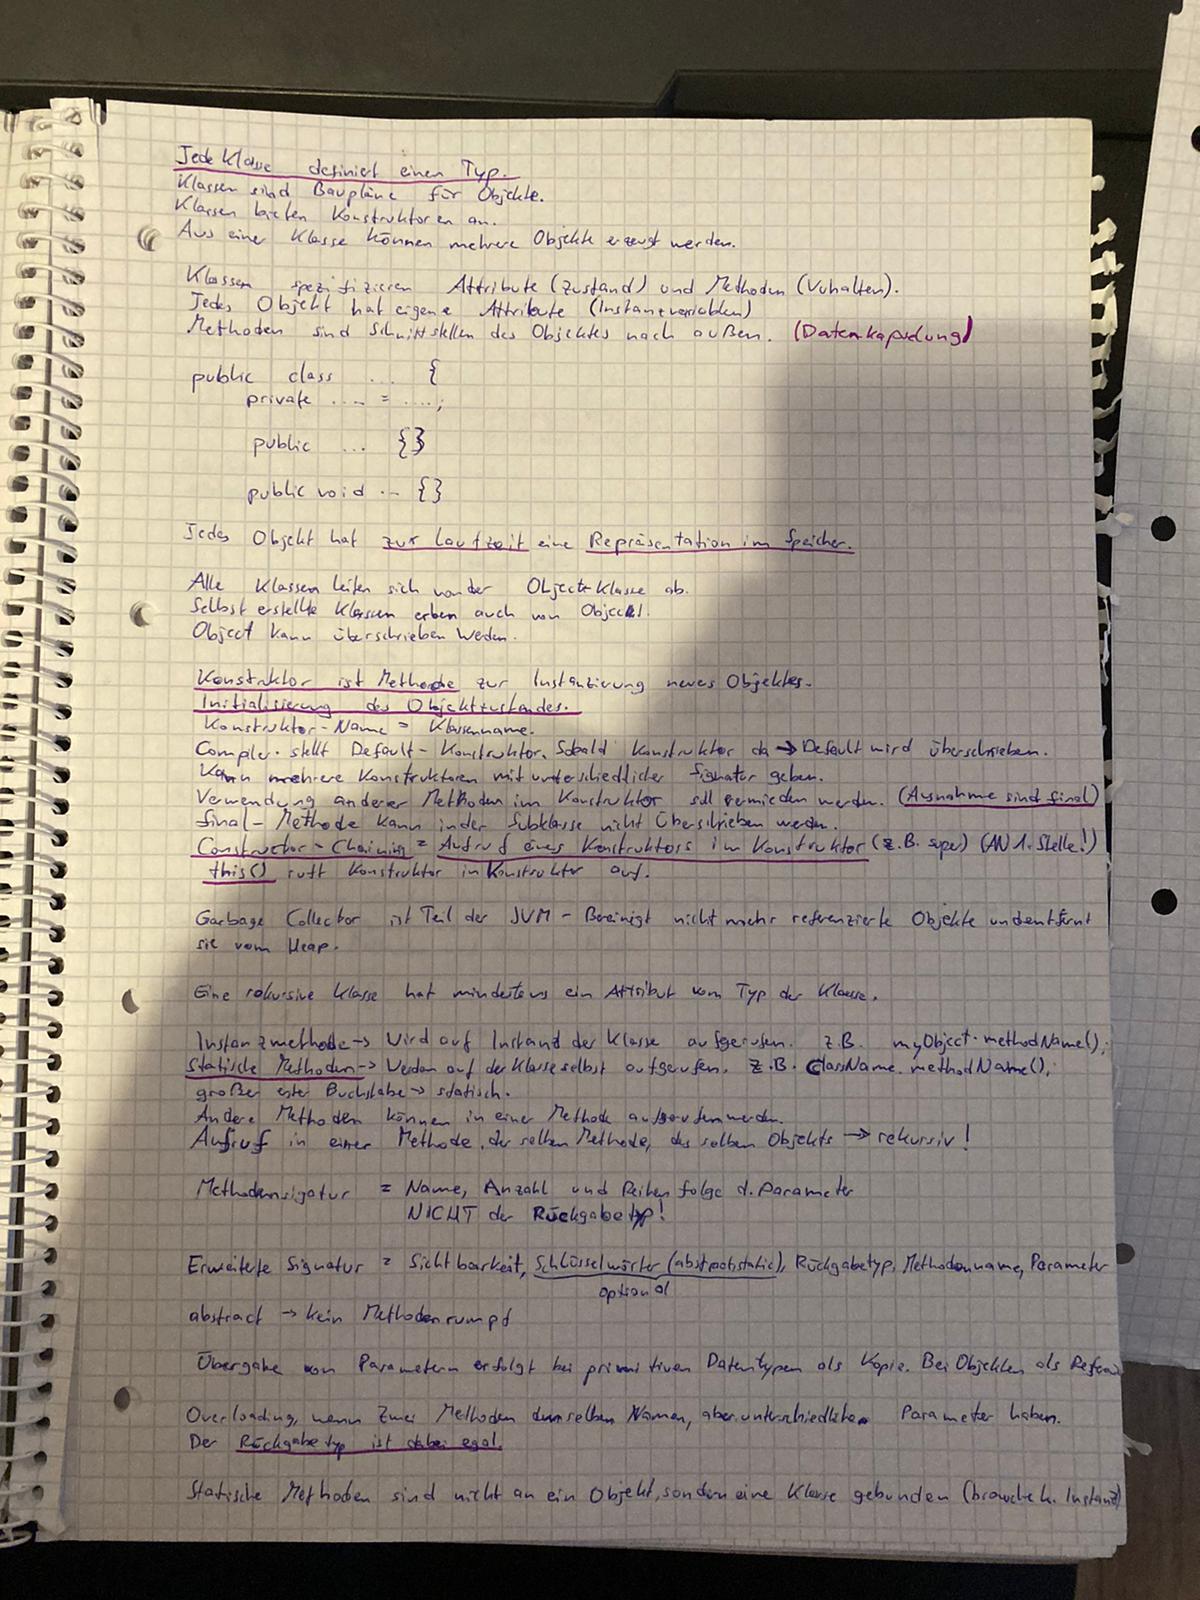 Jede Klasse definiert einen Typ.
Klassen sind Baupläne für Objekte.
Klassen bieten Konstruktoren an.
Aus einer Klasse können mehrere Objekte erzeugt werden.
Klassen spezifizieren Attribute (Zustand) und Methoden (Verhalten).
Jedes Objekt hat eigene Attribute (Instanzvariablen)
Methoden sind Schnittstellen des Objektes nach außen. (Datenkapselung)
public class ... {
private .... = ....;
public ... {}
public void ... {}
Jedes Objekt hat zur Laufzeit eine Repräsentation im Speicher.
Alle Klassen leiten sich von der Object-Klasse ab.
Selbst erstellte Klassen erben auch von Object!
Object kann überschrieben werden.
Konstruktor ist Methode zur Instanzierung neues Objektes.
Initialisierung des Objektzustandes.
Konstruktor-Name = Klassenname.
Compiler stellt Default-Konstruktor. Sobald Konstruktor da → Default wird überschrieben.
Kann mehrere Konstruktoren mit unterschiedlicher Signatur geben.
Verwendung anderer Methoden im Konstruktor soll vermieden werden. (Ausnahme sind final)
final-Methode kann in der Subklasse nicht Überschrieben werden.
Constructor-Chaining = Aufruf eines Konstruktors im Konstruktor (z.B. super) (AN 1. Stelle!)
this() ruft Konstruktor in Konstruktor auf.
Garbage Collector ist Teil der JVM - Bereinigt nicht mehr referenzierte Objekte und entfernt
sie vom Heap.
Eine rekursive Klasse hat mindestens ein Attribut vom Typ der Klasse.
Instanzmethode → Wird auf Instand der Klasse aufgerufen. z.B. myObject.methodName();
Statische Methoden → Werden auf der Klasse selbst aufgerufen. z.B. ClassName.methodName();
großer erster Buchstabe → statisch.
Andere Methoden können in einer Methode aufgerufen werden.
Aufruf in einer Methode, der selben Methode, des selben Objekts → rekursiv!
Methodensigatur = Name, Anzahl und Reihenfolge d. Parameter
NICHT der Rückgabetyp!
Erweiterte Signatur = Sichtbarkeit, Schlüsselwörter (abstract, static), Rückgabetyp, Methodenname, Parameter
optional
abstract → kein Methodenrumpf
Übergabe von Parametern erfolgt bei primitiven Datentypen als Kopie. Bei Objekten als
Overloading, wenn zwei Methoden denselben Namen, aber unterschiedliche Parameter haben.
Der Rückgabetyp ist dabei egal.
Statische Methoden sind nicht an ein Objekt, sondern eine Klasse gebunden (brauche k. Instanz)